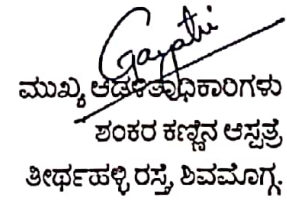 Gayatri
ಮುಖ್ಯ ಆಡಳಿತಾಧಿಕಾರಿಗಳು
ಶಂಕರ ಕಣ್ಣಿನ ಆಸ್ಪತ್ರೆ
ತೀರ್ಥಹಳ್ಳಿ ರಸ್ತೆ, ಶಿವಮೊಗ್ಗ.